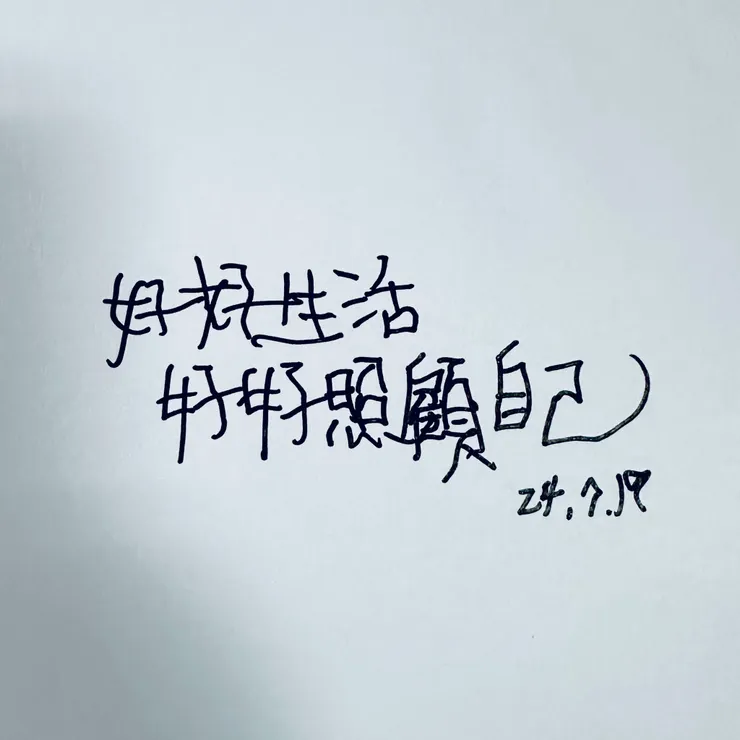 好好生活
好好照顧自己
24.7.19